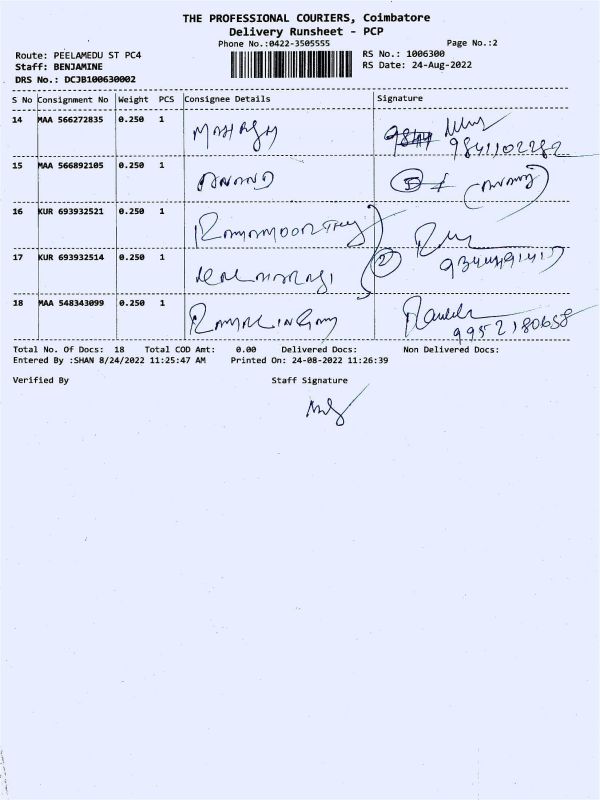 THE PROFESSIONAL COURIERS, Coimbatore
Delivery Runsheet - PCP
Phone No.:0422-3505555 Page No.:2
Route: PEELAMEDU ST PC4 RS No.: 1006300
Staff: BENJAMINE RS Date: 24-Aug-2022
DRS No.: DCJB100630002
S No Consignment No Weight PCS Consignee Details Signature
14 MAA 566272835 0.250 1 MAHESH
9841102282
15 MAA 566892105 0.250 1 ANAND
16 KUR 693932521 0.250 1 RAMAMOORTHY
17 KUR 693932514 0.250 1 2
18 MAA 548343099 0.250 1 RAMALINGAM
9952180658
Total No. Of Docs: 18 Total COD Amt: 0.00 Delivered Docs: Non Delivered Docs:
Entered By :SHAN 8/24/2022 11:25:47 AM Printed On: 24-08-2022 11:26:39
Verified By Staff Signature